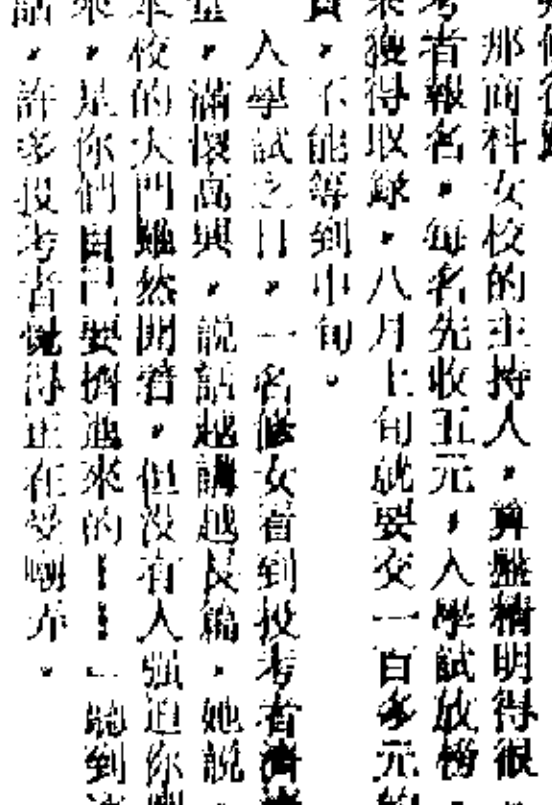 那商科女校的主持人,算盤精明得很
考者報名,每名先收五元,入學試放榜
獲得取錄,八月上旬就要交一百多元
,不能等到中旬。
入學試之日,一名修女看到投考者
,滿懷高興,説話越講越長篇,她説
校的大門雖然開着,但沒有人强迫你
來,是你們自己要擠進來的!!」聽到
話,許多投考者覺得正在受嘲弄。